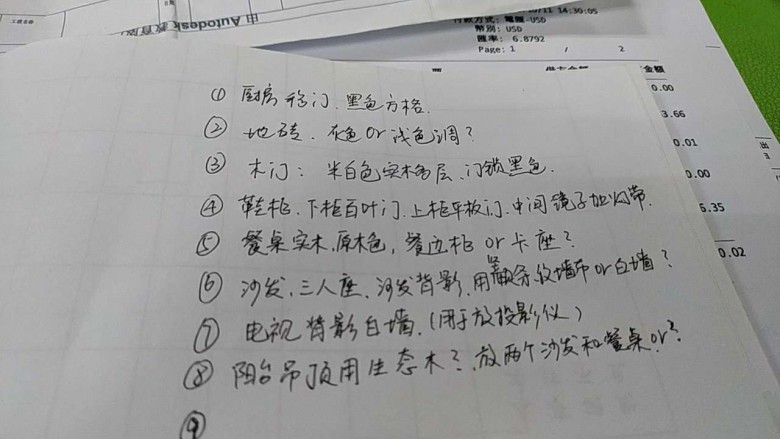 由 Autodesk 教育版
工程名称
10/11 14:30:05
行款方式: 電匯-USD
幣別: USD
匯率: 6.8792
Page: 1 / 2
金額
0.00
3.66
0.01
0.00
6.35
0.02
出
3
① 厨房移门、黑色方格.
② 地砖、灰色or浅色调?
③ 木门: 米白色实木多层、门锁黑色.
④ 鞋柜、下柜百叶门、上柜平板门、中间镜子加灯带.
⑤ 餐桌实木、原木色, 餐边柜 or 卡座?
⑥ 沙发、三人座、沙发背影、用竖条纹墙布or白墙?
⑦ 电视背影白墙.(用于放投影仪)
⑧ 阳台吊顶用生态木?、放两个沙发和餐桌or?
⑨